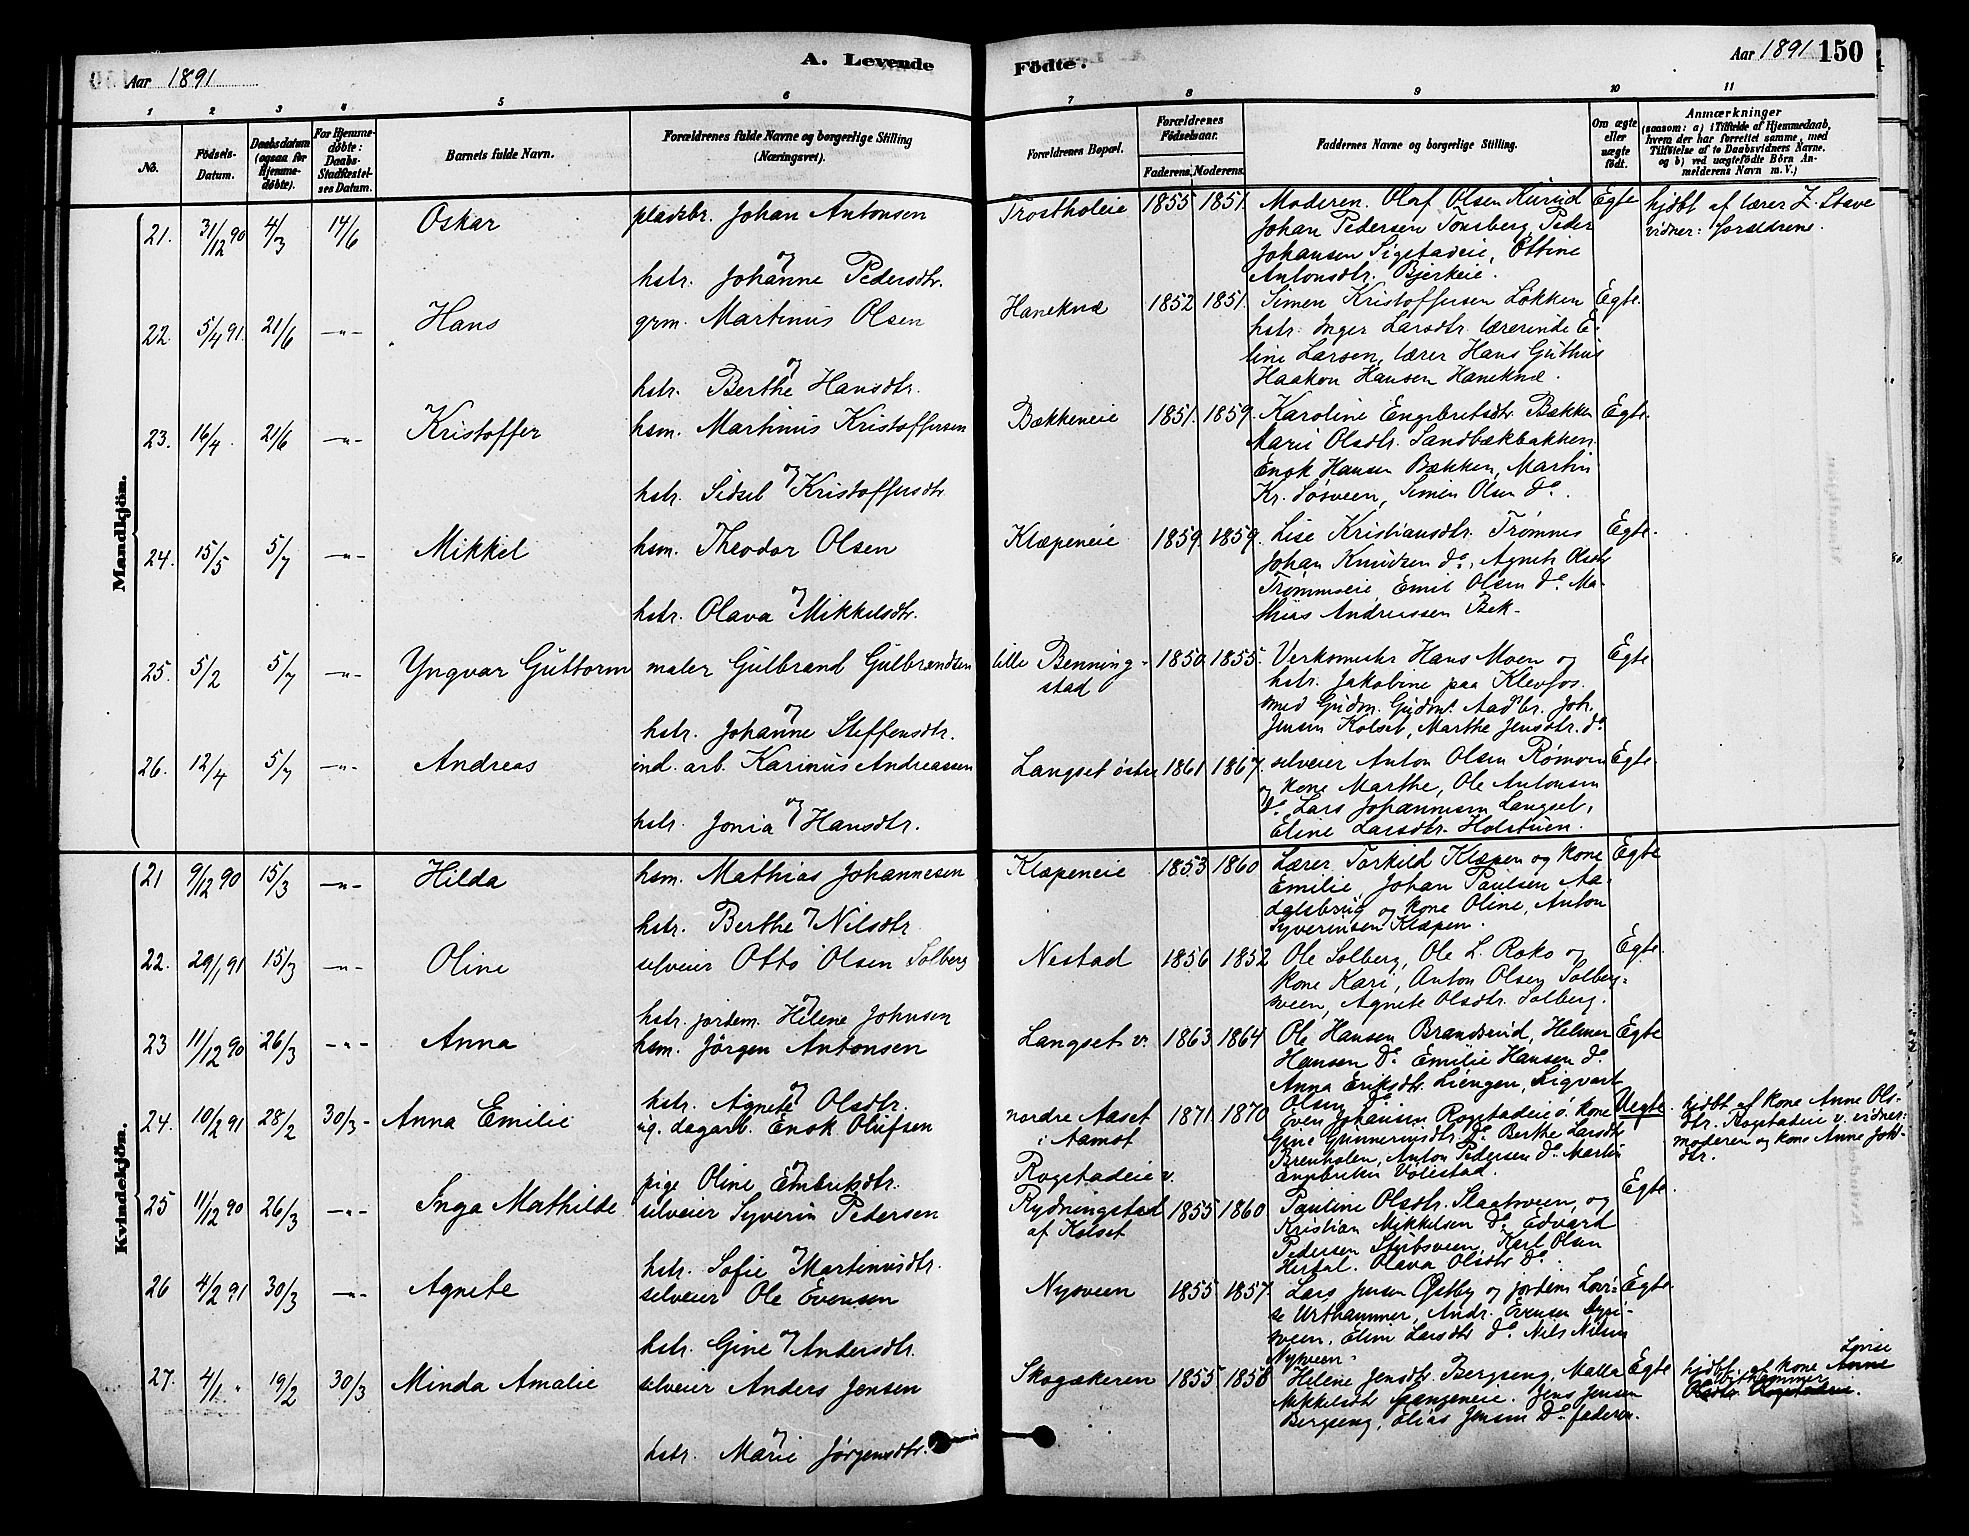 Aar 1891
A. Levende
Födte.
Aar 1891 150
1 2 3 4 5 6 7 8 9 10 11
No.
Födsels-
Datum.
Daabsdatum
(ogsaa for
Hjemme-
døbte).
For Hjemme-
døbte:
Daabs-
Stadfæstel-
ses Datum.
Barnets fulde Navn.
Forældrenes fulde Navne og borgerlige Stilling
(Næringsvei).
Forældrenes Bopæl.
Forældrenes
Födselsaar.
Faderens. Moderens.
Faddernes Navne og borgerlige Stilling.
Om ægte
eller
uægte
födt.
Anmærkninger
(saasom: a) i Tilfælde af Hjemmedaab,
hvem der har forrettet samme, med
Tilföielse af to Daabsvidners Navne,
og b) ved uægtefödte Börn An-
melderens Navn m. V.)
Mandkjön.
21. 31/12 90 4/3 14/6 Oskar pladsbr. Johan Antonsen
og
hstr. Johanne Pedersdtr.
Trostholeie 1855 1851. Moderen. Olaf Olsen Kurud
Johan Pedersen Tonsberg, Peder
Johansen Sigstadeie, Ottine
Antonsdtr. Bjerkeie.
Egte hjdbt af lærer Z. Stave
vidner: forældrene.
22. 5/4 91. 21/6 -"- Hans grm. Martinus Olsen
og
hstr. Berthe Hansdtr.
Haneknæ 1852 1851. Simen Kristoffersen Løkken
hstr. Inger Larsdtr. lærerinde E-
line Larsen, lærer Hans Guthus
Haakon Hansen Haneknæ.
Egte.
23. 16/4. 21/6 -"- Kristoffer hsm. Martinus Kristoffersen
og
hstr. Sidsel Kristoffersdtr
Bækkeneie 1851. 1859. Karoline Engebretsdtr Bækken
Marie Olsdtr. Sandbækbakken.
Enok Hansen Bækken, Martin
Kr. Søsveen, Simen Olsen do.
Egte.
24. 15/5 5/7 -"- Mikkel hsm. Theodor Olsen
og
hstr. Olava Mikkelsdtr.
Klæpeneie 1859. 1859. Lise Kristiansdtr. Trømnes
Johan Knudsen do., Agnete Olsdtr
Emil Olsen do. Ma-
thias Andreassen Bek-
Egte.
25. 5/2 5/7 -"- Yngvar Guttorm maler Gulbrand Gulbrandsen
og
hstr. Johanne Steffensdtr.
lille Benning-
stad 1850. 1855. Verksmestr Hans Moen og
hstr. Jakobine paa Klevfos.
smed Gudm. Gudm. Aadsbr. Joh.
Jensen Kolset, Marthe Jensdtr. do
Egte
26. 12/4 5/7 -"- Andreas ind. arb. Karinus Andreassen
og
hstr. Jonia Hansdtr.
Langset østre 1861 1867. selveier Anton Olsen Rømoen
og kone Marthe, Ole Antonsen
do. Lars Johannesen Langset,
Eline Larsdtr. Holstuen.
Egte.
Kvindekjön.
21 9/12 90 15/3 -"- Hilda hsm. Mathias Johannesen
og
hstr. Berthe Nilsdtr
Klæpeneie 1853 1860 Lærer Torkild Klæpen og kone
Emilie, Johan Paulsen Aa-
dalsbrug og kone Oline, Anton
Syverinsen Klæpen.
Egte
22. 29/1 91 15/3 -"- Oline selveier Otto Olsen Solberg
og
hstr. jordem. Helene Johnsen
Nestad 1856 1852 Ole Solberg, Ole L. Roko og
kone Kari, Anton Olsen Solberg-
sveen, Agnete Olsdtr. Solberg.
Egte.
23 11/12 90 26/3 -"- Anna hsm. Jörgen Antonsen
og
hstr. Agnete Olsdtr.
Langset v. 1863 1864 Ole Hansen Brandsrud, Helmer
Hansen do. Emilie Hansen do.
Anna Eriksdtr. Liengen, Sigvart
Olsen do.
Egte
24. 10/2 91 28/2 30/3- Anna Emilie ug. dagarb. Enok Olufsen
og
pige Oline Embriksdtr.
nordre Aaset
i Aamot
Rogstadeie v.
1871. 1870 Even Johansen Rogstadeie ø. kone
Gine Gunnerusdtr. do. Berthe Larsdtr
Brenholen, Anton Pedersen do. Martin
Engebretsen Volestad.
Uegte. hjdbt af kone Anne Ols-
dtr. Rogstadeie v. vidner:
moderen og kone Anne Joh-
dtr.
25 11/12 90 26/3 -"- Inga Mathilde selveier Syverin Pedersen
og
hstr. Sofie Martinusdtr.
Rydningstad
af Kolset 1855 1860 Pauline Olsdtr. Slaatsveen, og
Kristian Mikkelsen do. Edvard
Pedersen Stubsveen, Karl Olsen
Herdal. Olava Olsdtr do.
Egte.
26 4/2 91 30/3 -"- Agnete selveier Ole Evensen
og
hstr. Gine Andersdtr.
Nysveen 1855 1857. Lars Jensen Østby og jordem. Lovi-
se Urthammer, Andr. Evensen
Eline Larsdtr do. Nils Nilsen
Nysveen.
Egte.
27. 4/1. " 19/2 30/3 Minda Amalie selveier Anders Jensen
og
hstr. Marie Jörgensdtr.
Skogækeren 1855 1858 Helene Jensdtr. Bergseng, Malla
Mikkelsdtr Jens Jensen
Bergseng, Elias Jensen do. faderen.
Egte hjdbt. af kone Anne Lovise
Urthammer
Olsdtr. Rogstadeie.